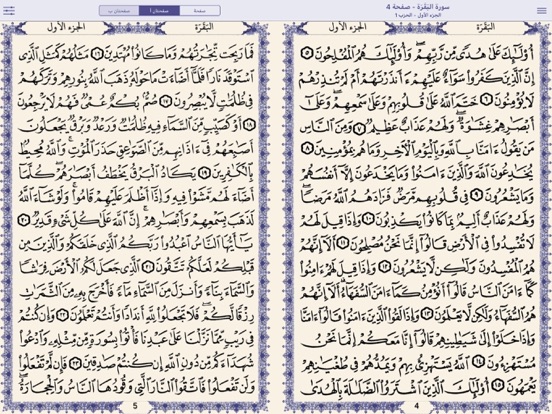 سورة البَقَرَة - صفحة 4
الجزء الأول - الحزب 1
صفحة
صفحتان أ
صفحتان ب
البَقَرَة
الجزء الأول
أُوْلَٰئِكَ عَلَىٰ هُدىً مِّن رَّبِّهِمْ وَأُوْلَٰئِكَ هُمُ الْمُفْلِحُونَ
إِنَّ الَّذِينَ كَفَرُوا سَوَاءٌ عَلَيْهِمُ ءَآنذَرْتَهُمُ أَمْ لَمْ تُنذِرْهُمْ
لَا يُومِنُونَ خَتَمَ اللَّهُ عَلَىٰ قُلُوبِهِمْ وَعَلَىٰ سَمْعِهِمْ وَعَلَىٰ
أَبْصَٰرِهِمْ غِشَٰوَةٌ وَلَهُمْ عَذَابٌ عَظِيمٌ وَمِنَ النَّاسِ
مَنْ يَقُولُ ءَامَنَّا بِاللَّهِ وَبِالْيَوْمِ الْأَخِرِ وَمَا هُم بِمُومِنِينَ
يُخَٰدِعُونَ اللَّهَ وَالَّذِينَ ءَامَنُوا وَمَا يُخَٰدِعُونَ إِلَّا أَنفُسَهُمْ
وَمَا يَشْعُرُونَ فِي قُلُوبِهِم مَّرَضٌ فَزَادَهُمُ اللَّهُ مَرَضاً
وَلَهُمْ عَذَابٌ أَلِيمٌ بِمَا كَانُوا يُكَذِّبُونَ وَإِذَا قِيلَ لَهُمْ
لَا تُفْسِدُوا فِي الْأَرْضِ قَالُوا إِنَّمَا نَحْنُ مُصْلِحُونَ أَلَا إِنَّهُمْ
هُمُ الْمُفْسِدُونَ وَلَٰكِن لَّا يَشْعُرُونَ وَإِذَا قِيلَ لَهُمُ ءَامِنُوا
كَمَا ءَامَنَ النَّاسُ قَالُوا أَنُومِنُ كَمَا ءَامَنَ السُّفَهَاءُ أَلَا إِنَّهُمْ
هُمُ السُّفَهَاءُ وَلَٰكِن لَّا يَعْلَمُونَ وَإِذَا لَقُوا الَّذِينَ ءَامَنُوا قَالُوا ءَامَنَّا
وَإِذَا خَلَوِا اِلَىٰ شَيَٰطِينِهِمْ قَالُوا إِنَّا مَعَكُمُ إِنَّمَا نَحْنُ
مُسْتَهْزِءُونَ اللَّهُ يَسْتَهْزِئُ بِهِمْ وَيَمُدُّهُمْ فِي طُغْيَٰنِهِمْ
يَعْمَهُونَ أُوْلَٰئِكَ الَّذِينَ اَشْتَرَوُا الضَّلَٰلَةَ بِالْهُدَىٰ
4
البَقَرَة
الجزء الأول
فَمَا رَبِحَت تِّجَٰرَتُهُمْ وَمَا كَانُوا مُهْتَدِينَ مَثَلُهُمْ كَمَثَلِ الَّذِي
اِسْتَوْقَدَ نَاراً فَلَمَّا أَضَاءَتْ مَا حَوْلَهُ ذَهَبَ اللَّهُ بِنُورِهِمْ وَتَرَكَهُمْ
فِي ظُلُمَٰتٍ لَّا يُبْصِرُونَ صُمٌّ بُكْمٌ عُمْيٌ فَهُمْ لَا يَرْجِعُونَ
أَوْ كَصَيِّبٍ مِّنَ السَّمَاءِ فِيهِ ظُلُمَٰتٌ وَرَعْدٌ وَبَرْقٌ يَجْعَلُونَ
أَصَٰبِعَهُمْ فِي ءَاذَانِهِم مِّنَ الصَّوَٰعِقِ حَذَرَ الْمَوْتِ وَاللَّهُ مُحِيطٌ
بِالْكَٰفِرِينَ يَكَادُ الْبَرْقُ يَخْطَفُ أَبْصَٰرَهُمْ كُلَّمَا
أَضَاءَ لَهُم مَّشَوْا فِيهِ وَإِذَا أَظْلَمَ عَلَيْهِمْ قَامُوا وَلَوْ شَاءَ اللَّهُ
لَذَهَبَ بِسَمْعِهِمْ وَأَبْصَٰرِهِمُ إِنَّ اللَّهَ عَلَىٰ كُلِّ شَيْءٍ قَدِيرٌ
يَٰأَيُّهَا النَّاسُ اُعْبُدُوا رَبَّكُمُ الَّذِي خَلَقَكُمْ وَالَّذِينَ مِن
قَبْلِكُمْ لَعَلَّكُمْ تَتَّقُونَ الَّذِي جَعَلَ لَكُمُ الْأَرْضَ فِرَٰشاً
وَالسَّمَاءَ بِنَاءً وَأَنزَلَ مِنَ السَّمَاءِ مَاءً فَأَخْرَجَ بِهِ مِنَ الثَّمَرَٰتِ
رِزْقاً لَّكُمْ فَلَا تَجْعَلُوا لِلَّهِ أَندَاداً وَأَنتُمْ تَعْلَمُونَ وَإِن كُنتُمْ
فِي رَيْبٍ مِّمَّا نَزَّلْنَا عَلَىٰ عَبْدِنَا فَأْتُوا بِسُورَةٍ مِّن مِّثْلِهِ وَادْعُوا
شُهَدَاءَكُم مِّن دُونِ اللَّهِ إِن كُنتُمْ صَٰدِقِينَ فَإِن لَّمْ تَفْعَلُوا
وَلَن تَفْعَلُوا فَاتَّقُوا النَّارَ الَّتِي وَقُودُهَا النَّاسُ وَالْحِجَارَةُ
5